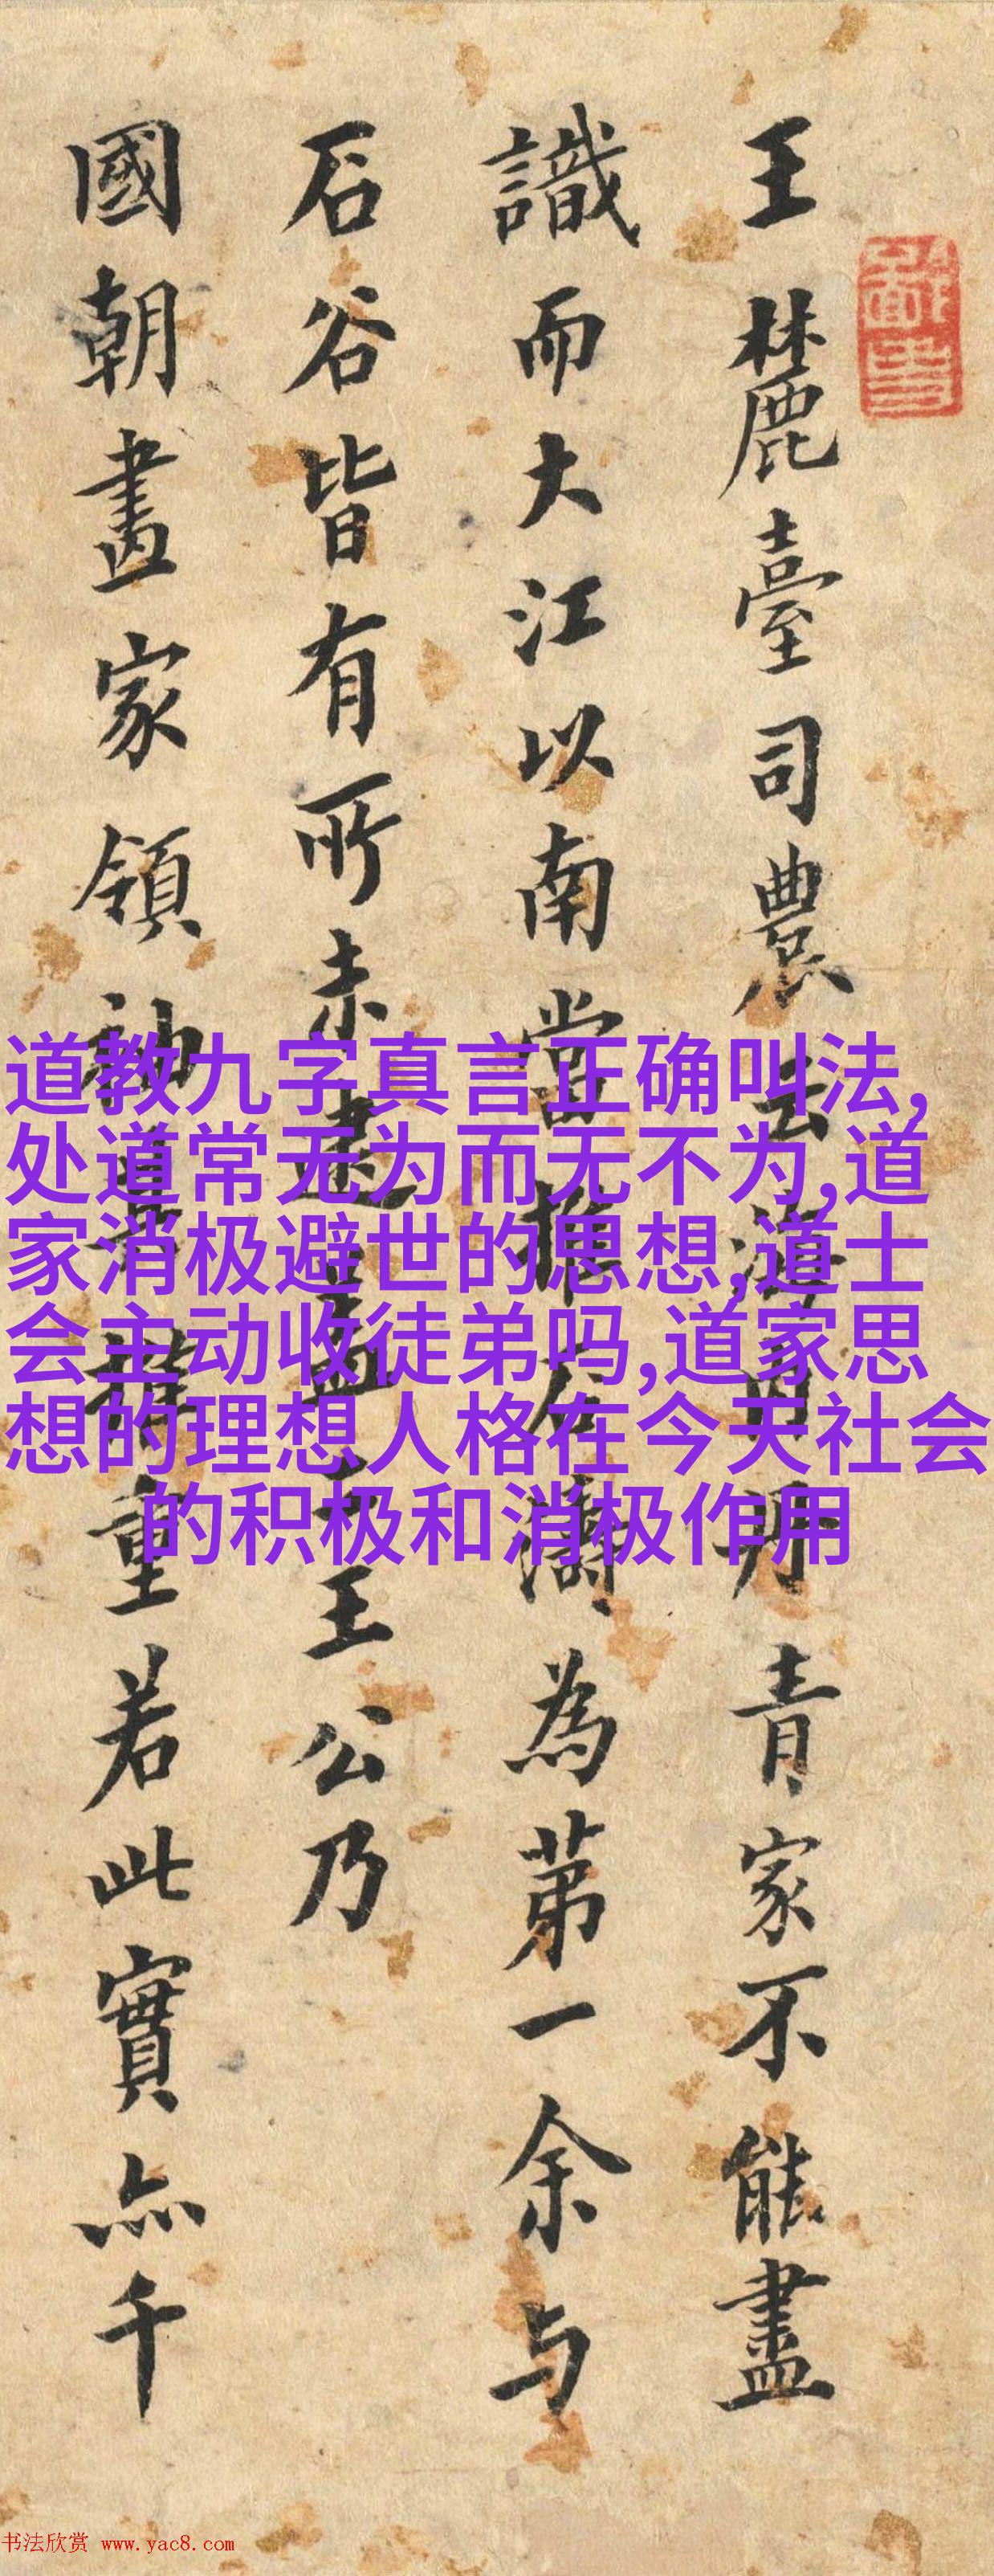 王麓臺司農云海內丹青家不能盡
識而大江以南當推石濤為第一余与
石谷皆有所未逮葢王公乃
國朝畫家領袖重若此實亦千
道教九字真言正确叫法,
处道常无为而无不为,道
家消极避世的思想,道士
会主动收徒弟吗,道家思
想的理想人格在今天社会
的积极和消极作用
书法欣赏 www.yac8.com